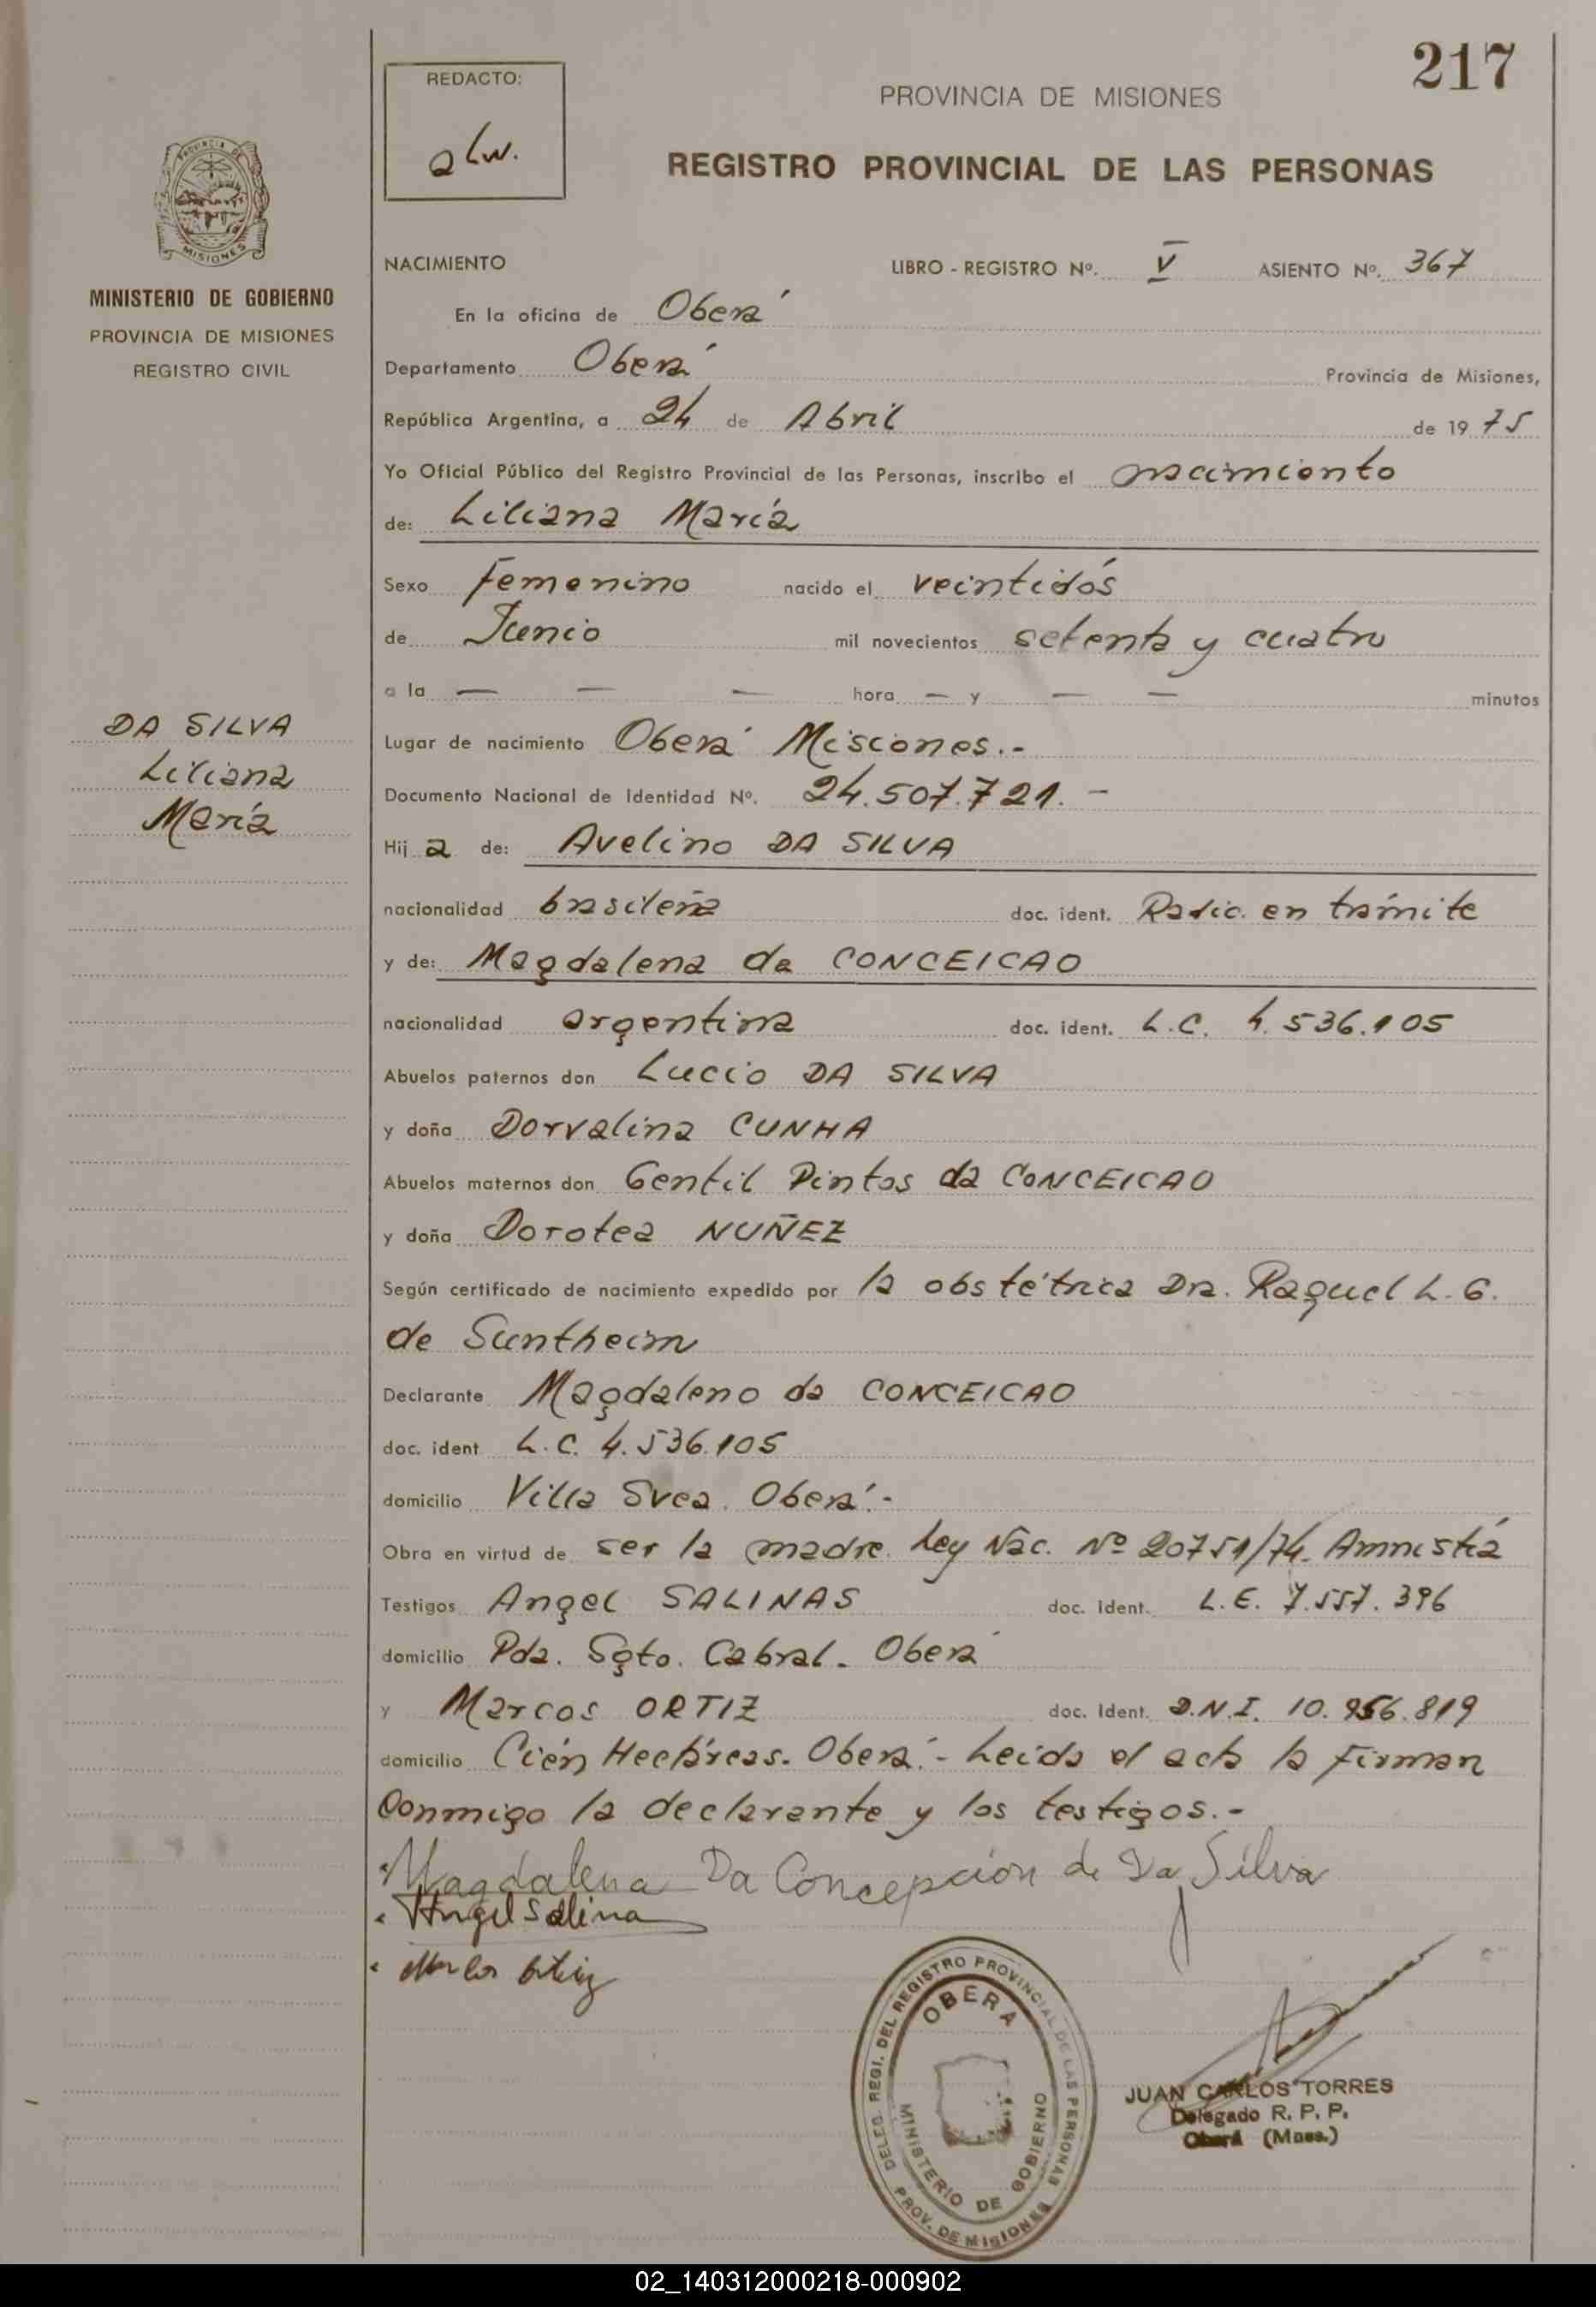 217
REDACTO:
alw.
PROVINCIA DE MISIONES
REGISTRO PROVINCIAL DE LAS PERSONAS
PROVINCIA DE
MISIONES
MINISTERIO DE GOBIERNO
PROVINCIA DE MISIONES
REGISTRO CIVIL
NACIMIENTO LIBRO - REGISTRO Nº. V ASIENTO Nº. 367
En la oficina de Oberá
Departamento Oberá Provincia de Misiones,
República Argentina, a 24 de Abril de 1975
Yo Oficial Público del Registro Provincial de las Personas, inscribo el nacimiento
de: Liliana María
Sexo femenino nacido el veintidós
de Junio mil novecientos setenta y cuatro
a la — — — hora — y — — minutos
DA SILVA
Liliana
María
Lugar de nacimiento Oberá Misiones.-
Documento Nacional de Identidad Nº. 24.507.721. -
Hija de: Avelino DA SILVA
nacionalidad brasileña doc. ident. Radic. en trámite
y de: Magdalena da CONCEICAO
nacionalidad argentina doc. ident. L.C. 4.536.105
Abuelos paternos don Lucio DA SILVA
y doña Dorvalina CUNHA
Abuelos maternos don Gentil Pintos da CONCEICAO
y doña Dorotea NUÑEZ
Según certificado de nacimiento expedido por la obstétrica Dra. Raquel L. G.
de Suntheim
Declarante Magdaleno da CONCEICAO
doc. ident L.C. 4.536.105
domicilio Villa Svea. Oberá.-
Obra en virtud de ser la madre. Ley Nac. Nº 20751/74. Amnistía
Testigos Angel SALINAS doc. ident. L.E. 7.557.396
domicilio Pda. Sgto. Cabral. Oberá
y Marcos ORTIZ doc. Ident. D.N.I. 10.956.819
domicilio Cién Hectáreas. Oberá.- Leida el acta la firman
conmigo la declarante y los testigos.-
Magdalena Da Concepción de Da Silva
Angel Salina
Marcos Ortiz
DELEG. REGI. DEL REGISTRO PROVINCIAL DE LAS PERSONAS
OBERA
MINISTERIO DE GOBIERNO
PROV. DE MISIONES
JUAN CARLOS TORRES
Delegado R. P. P.
Oberá (Mnes.)
02_140312000218-000902